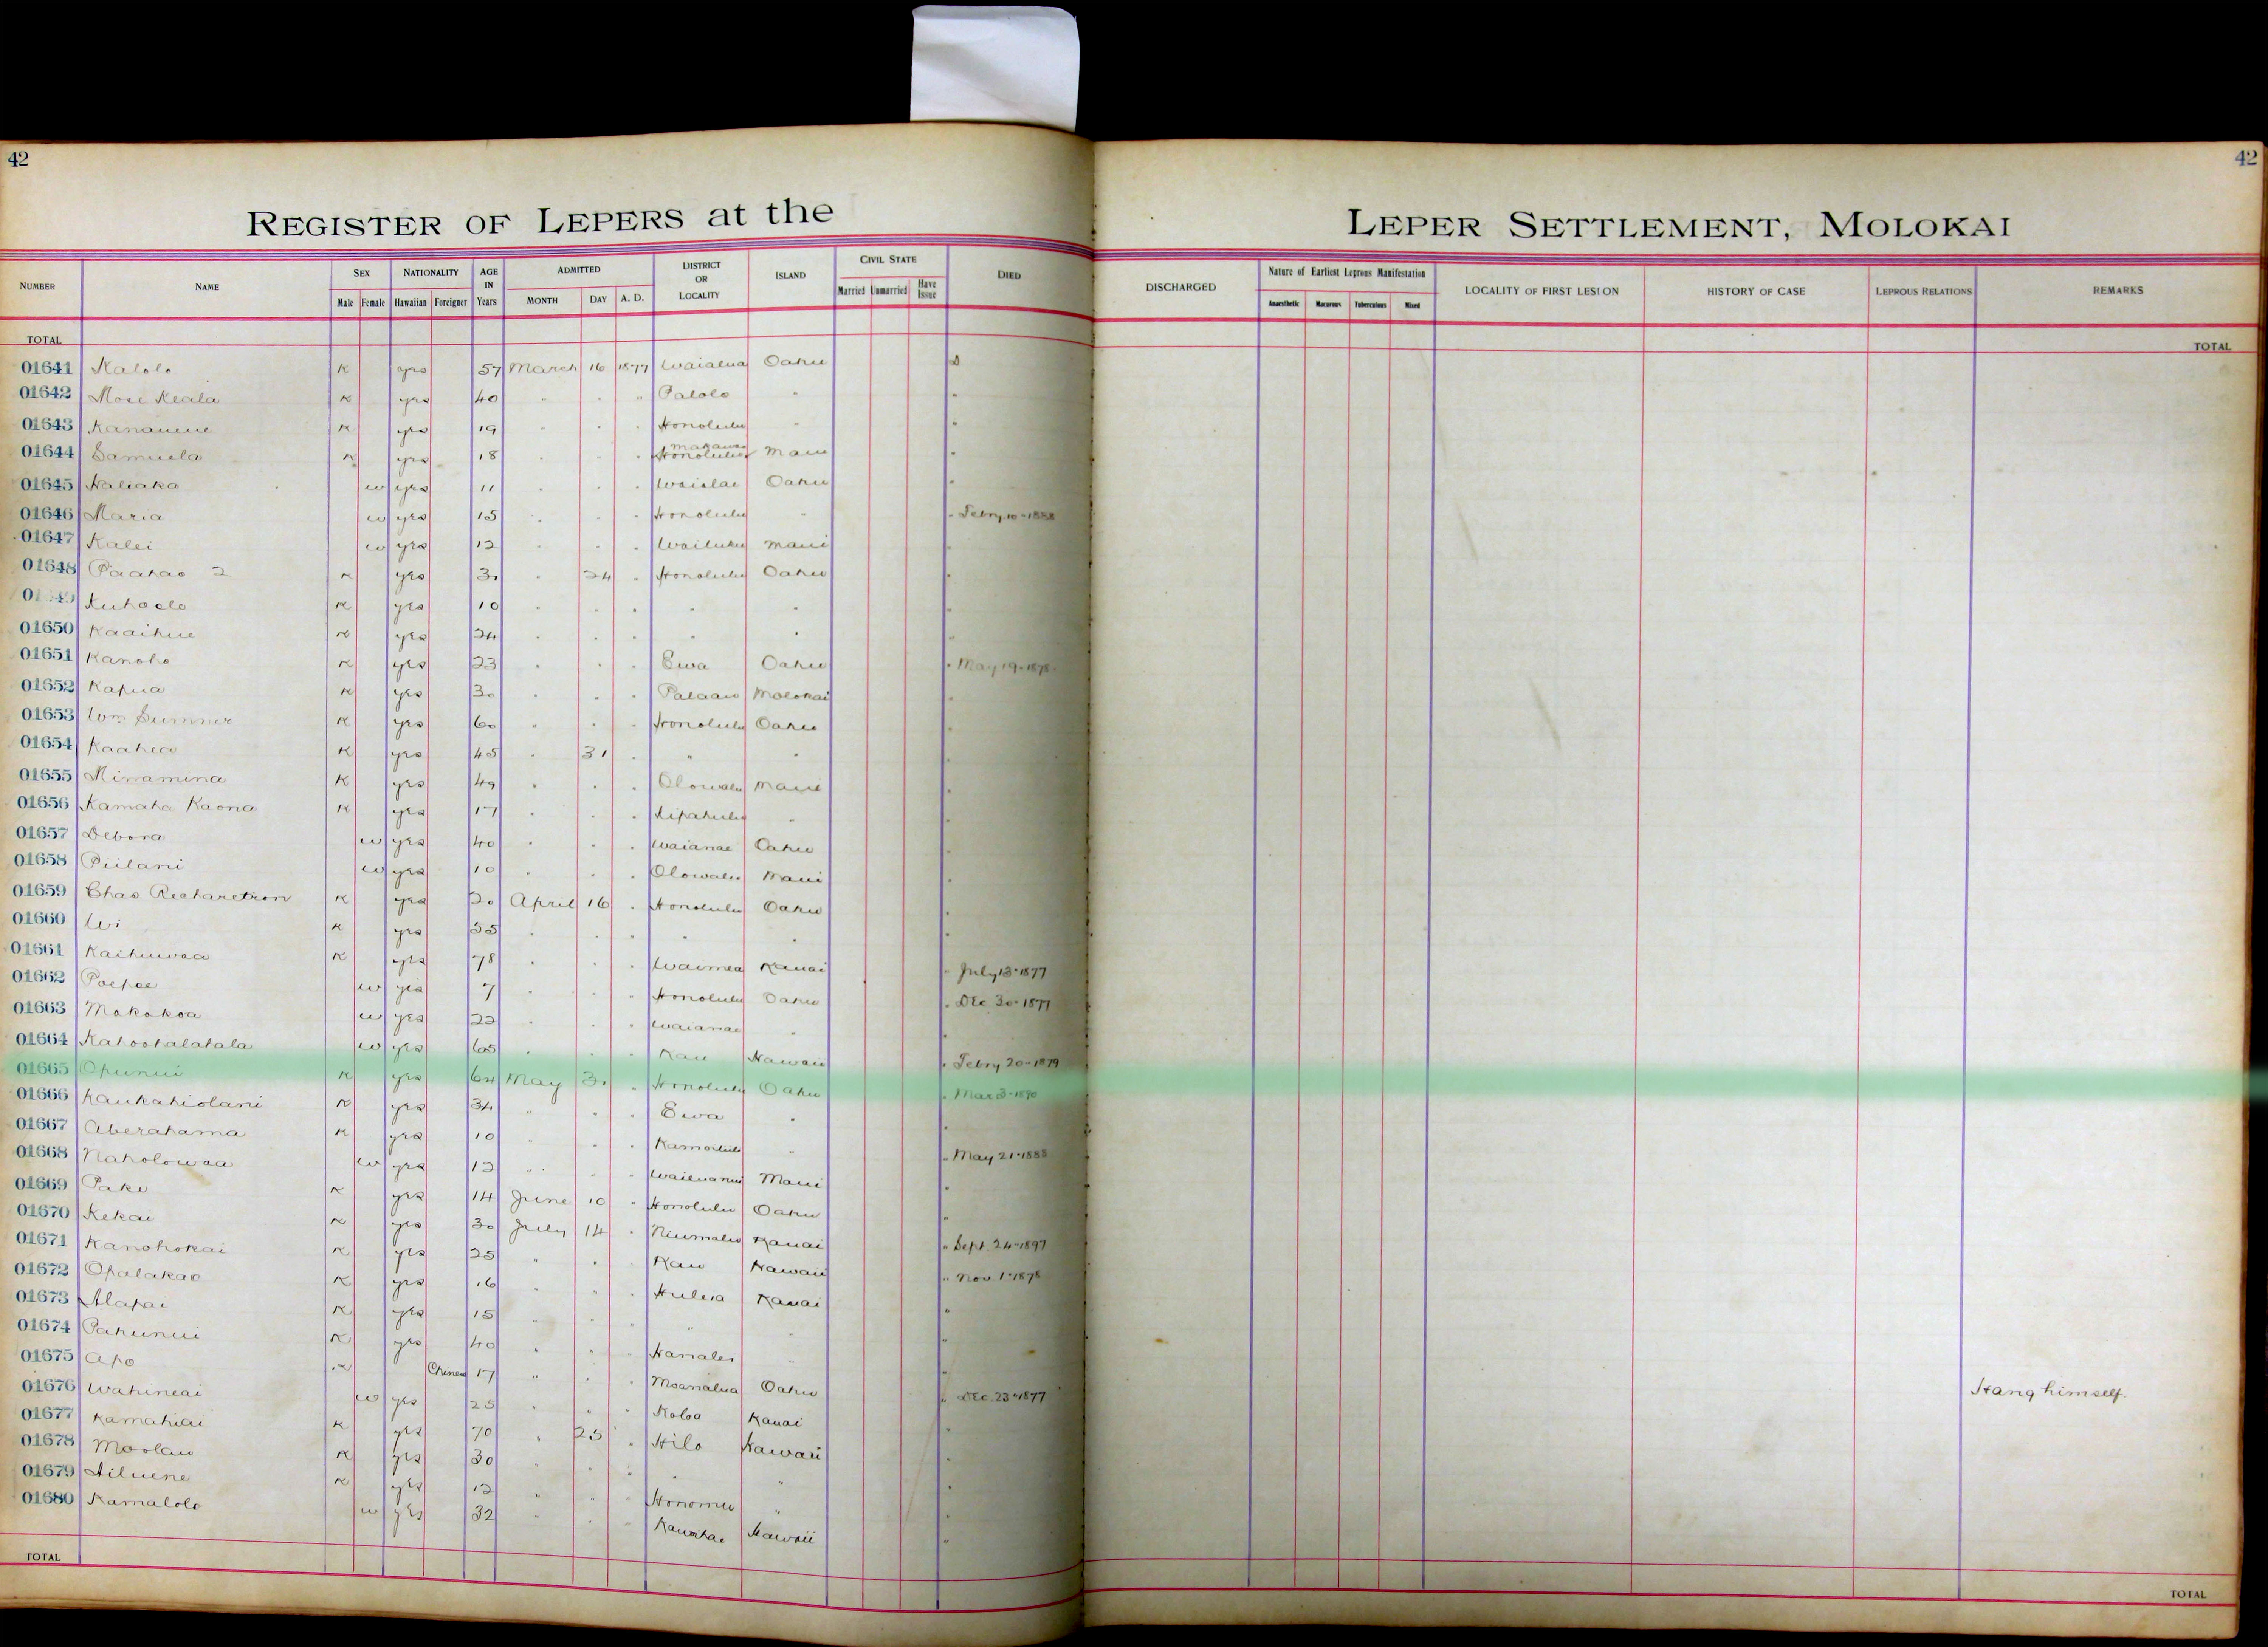 42
42
REGISTER OF LEPERS at the LEPER SETTLEMENT, MOLOKAI
NUMBER NAME SEX NATIONALITY AGE IN Years ADMITTED DISTRICT OR LOCALITY ISLAND CIVIL STATE DIED DISCHARGED Nature of Earliest Leprous Manifestation LOCALITY OF FIRST LESION HISTORY OF CASE LEPROUS RELATIONS REMARKS
Male Female Hawaiian Foreigner MONTH DAY A. D. Married Unmarried Have Issue Anaesthetic Macurous Tuberculous Mixed
TOTAL TOTAL
01641 Kalolo K yes 57 March 16 1877 Waialua Oahu D
01642 Mose Keala K yes 40 " " " Palolo " "
01643 Kananene K yes 19 " " " Honolulu " "
01644 Samuela K yes 18 " " " Makawao Honolulu Maui "
01645 Haliaka w yes 11 " " " Waialae Oahu "
01646 Maria w yes 15 " " " Honolulu " " Febry 10-1888
01647 Kalei w yes 12 " " " Wailuku Maui "
01648 Paahao 2 K yes 30 " 24 " Honolulu Oahu "
Kuhaelo K yes 10 " " " " " "
01650 Kaaihue K yes 24 " " " " " "
01651 Kanoho K yes 23 " " " Ewa Oahu " May 19-1878
01652 Kapua K yes 30 " " " Palaau Molokai "
01653 Wm Sumner K yes 60 " " " Honolulu Oahu "
01654 Kaahea K yes 45 " 31 " " " "
01655 Minamina K yes 49 " " " Olowalu Maui "
01656 Kamaka Kaona K yes 17 " " " Kipahulu " "
01657 Debora w yes 40 " " " Waianae Oahu "
01658 Piilani w yes 10 " " " Olowalu Maui "
01659 Chas Richardson K yes 20 April 16 " Honolulu Oahu "
01660 Wi K yes 35 " " " " " "
01661 Kaihuwaa K yes 78 " " " Waimea Kauai " July 13-1877
01662 Poepoe w yes 7 " " " Honolulu Oahu " Dec. 30-1877
01663 Makakoa w yes 22 " " " Waianae " "
01664 Kahoohalahala w yes 65 " " " Kau Hawaii " Febry 20-1879
01665 Opunui K yes 64 May 31 " Honolulu Oahu " Mar 3-1890
01666 Kaukahiolani K yes 34 " " " Ewa " "
01667 Aberahama K yes 10 " " " Kamoiliili " " May 21-1888
01668 Naholowaa w yes 12 " " " Wailuanui Maui "
01669 Pake K yes 14 June 10 " Honolulu Oahu "
01670 Kekai K yes 30 July 14 " Niumalu Kauai " Sept. 24-1897
01671 Kanohokai K yes 25 " " " Kau Hawaii " Nov. 1-1878
01672 Opalakao K yes 16 " " " Huleia Kauai "
01673 Alapai K yes 15 " " " " " "
01674 Pahunui K yes 40 " " " Hanalei " "
01675 Apo K Chinese 17 " " " Moanalua Oahu " Dec. 23-1877 Hang himself.
01676 Wahineai w yes 25 " " " Koloa Kauai "
01677 Kamahiai K yes 70 " 25 " Hilo Hawaii "
01678 Moolau K yes 30 " " " " " "
01679 Ailuene K yes 12 " " " Honomu " "
01680 Kamalolo w yes 32 " " " Kawaihae Hawaii "
TOTAL TOTAL